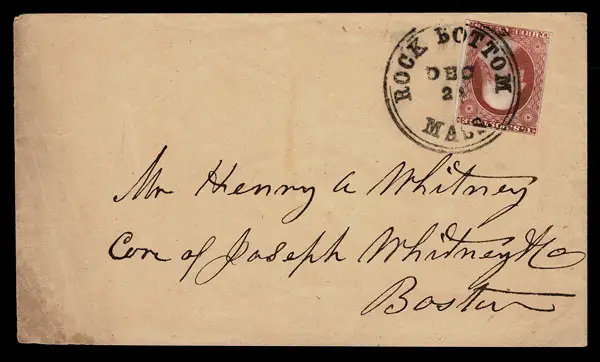 ROCK BOTTOM
DEC
MASS
Mr Henry A Whitney
Care of Joseph Whitney & Co
Boston